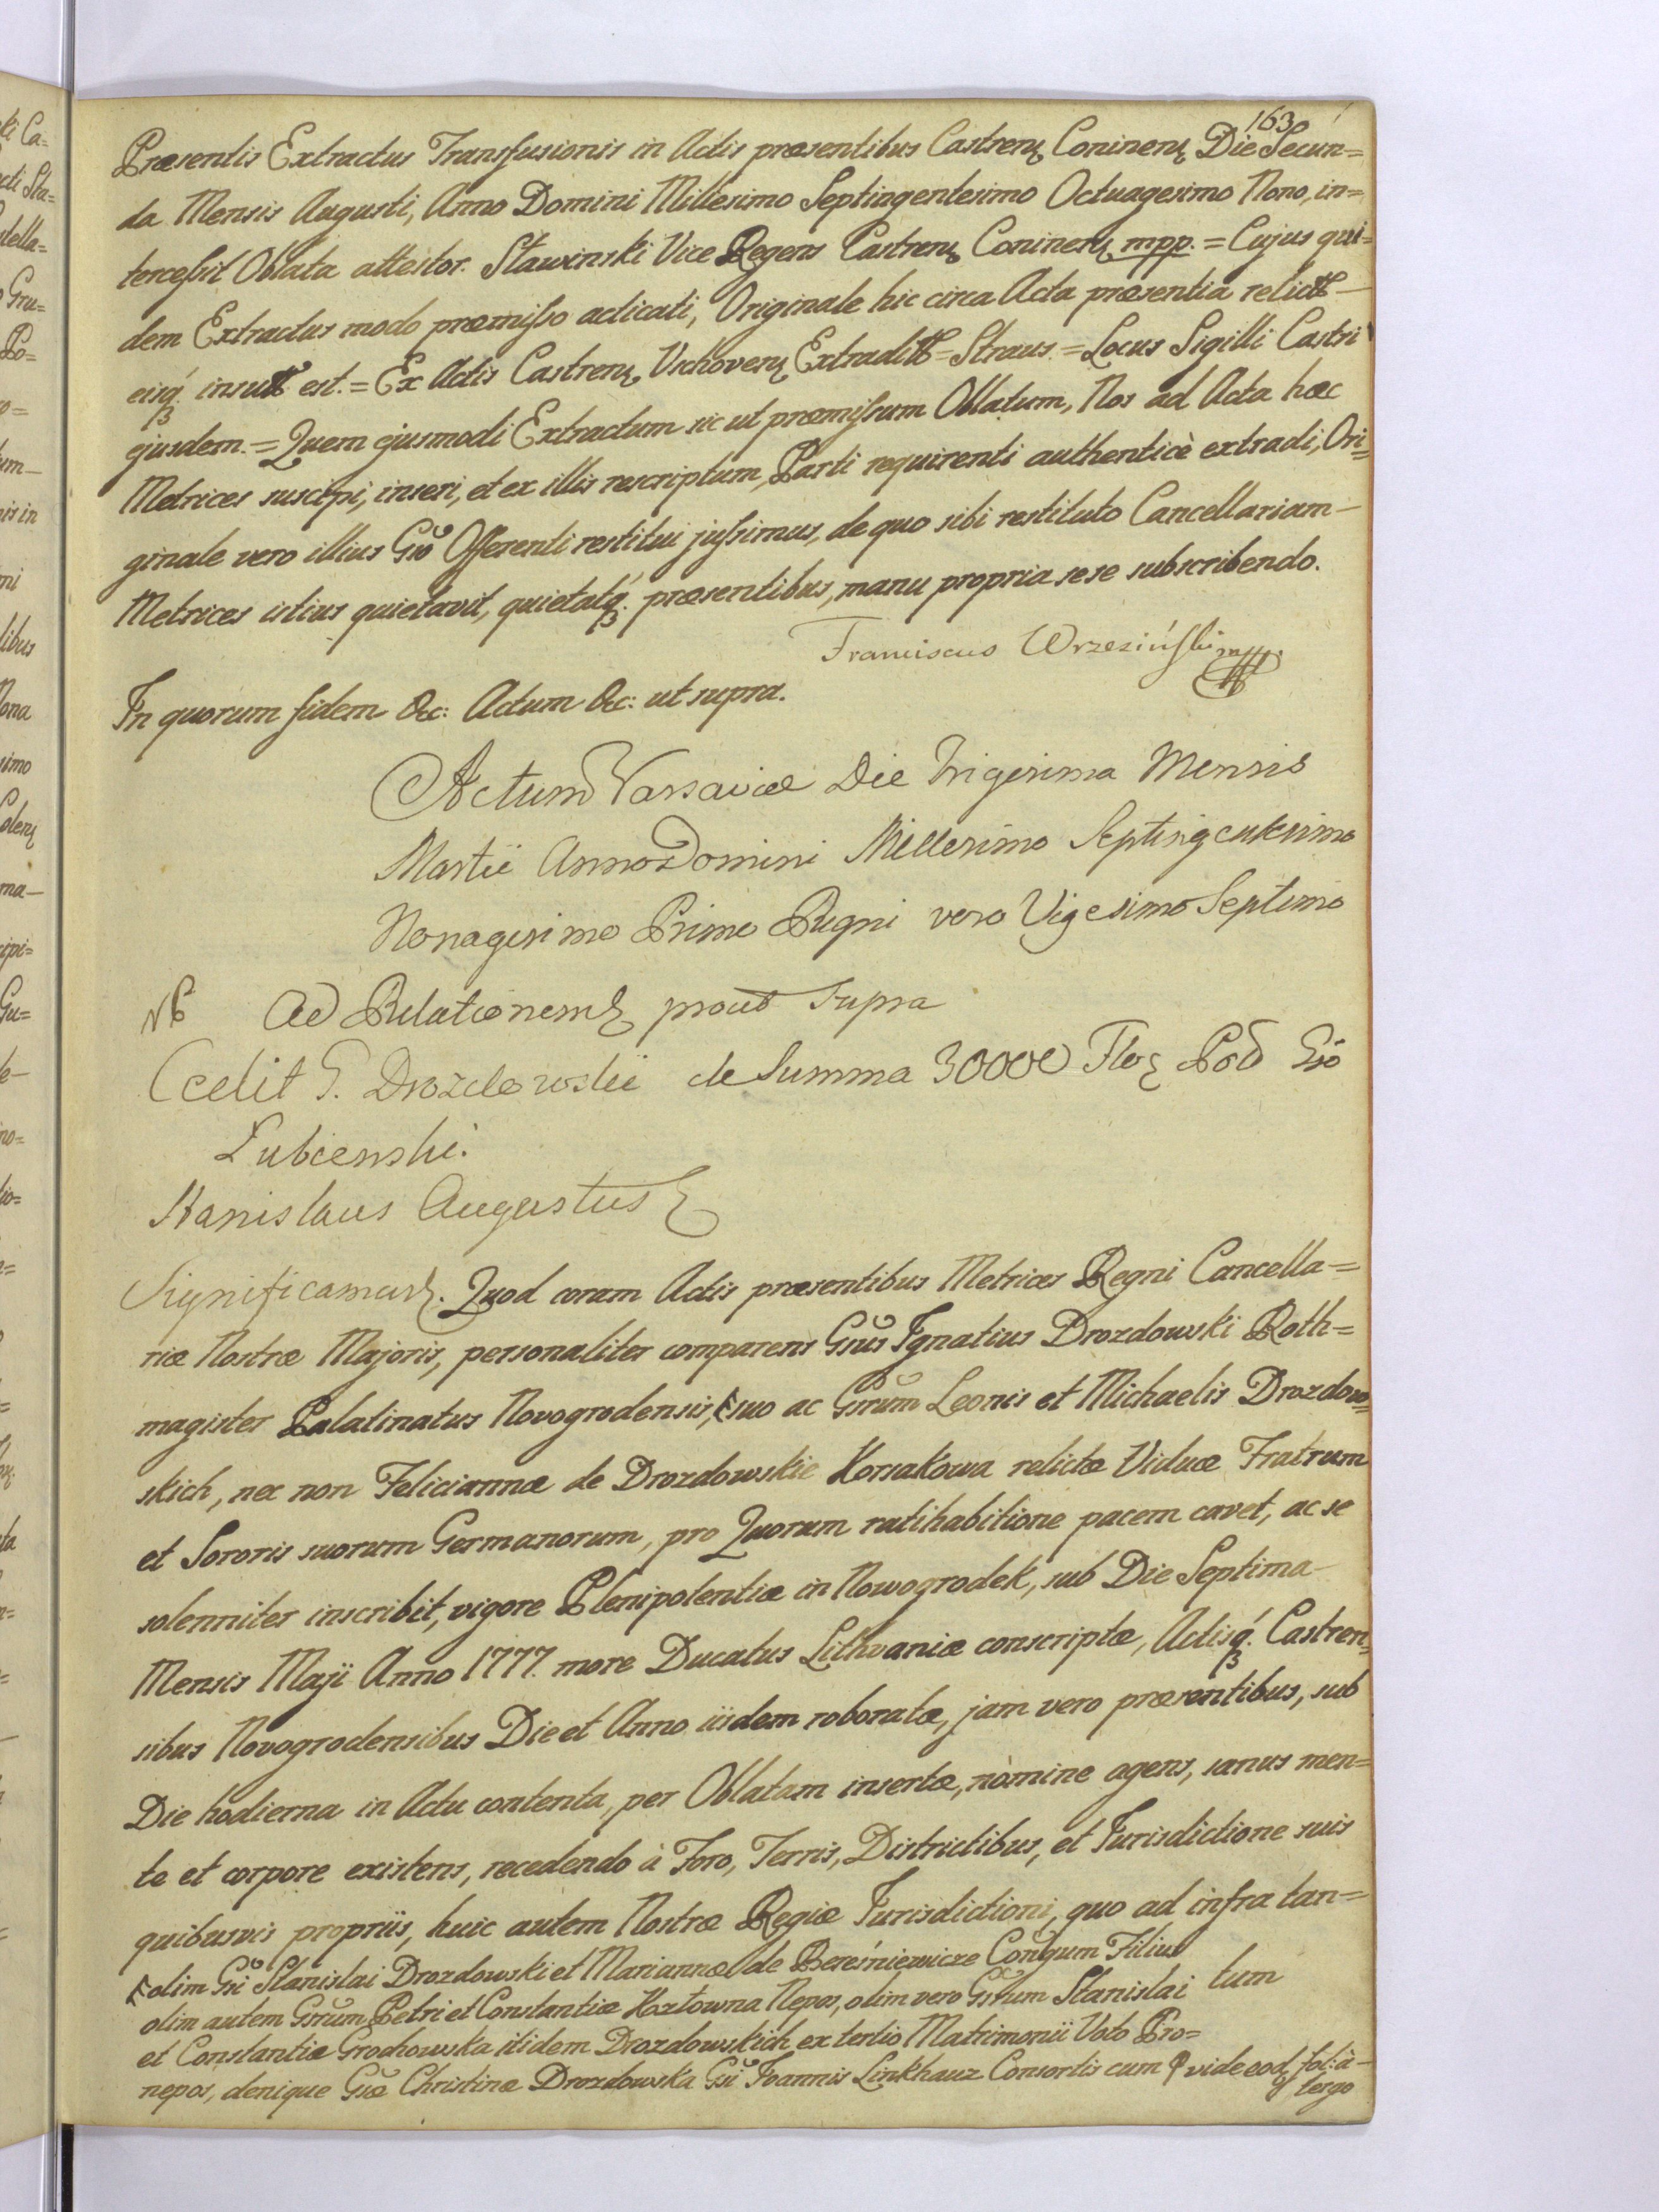 163
Præsentis Extractus Transfusionis in Actis præsentibus Castren: Coninen: Die Secun=
da Mensis Augusti, Anno Domini Millesimo Septingentesimo Octuagesimo Nono, in=
tercessit Oblata attestor. Sławinski Vice Regens Castren: Coninen: mpp. = Cujus qui=
dem Extractus modo præmisso acticati, Originale hic circa Acta præsentia relictt
eisq́3 insutt est. = Ex Actis Castren: Vschoven: Extraditt = Straus. = Locus Sigilli Castri
ejusdem. = Quem ejusmodi Extractum sic ut præmissum Oblatum, Nos ad Acta hæc
Metrices suscipi, inseri, et ex illis rescriptum, Parti requirenti authenticè extradi, Ori=
ginale vero illius Gsŏ Offerenti restitui jussimus, de quo sibi restituto Cancellariam
Metrices istius quietavit, quietatq́3. præsentibus, manu propria sese subscribendo.
Franciscus Wrzesiński mpp.
In quorum fidem &c: Actum &c: ut supra.
Actum Varsaviæ Die Trigesima Mensis
Martii Anno Domini Millesimo Septingentesimo
Nonagesimo Primo Regni vero Vigesimo Septimo
Ad Relationem: prout Supra
Cedit G. Drozdowskii de Summa 30000 Flor: Pol̃ Gsŏ
Lubienski.
Stanislaus Augustus:
Significamus:. Quod coram Actis præsentibus Metrices Regni Cancella=
riæ Nostræ Majoris, personaliter comparens Gsŭs Ignatius Drozdowski Roth=
magister Palatinatus Novogrodensis, suo ac Gsrŭm Leonis et Michaelis Drozdow=
skich, nec non Feliciannæ de Drozdowskie Korsakowa relictæ Viduæ Fratrum
et Sororis suorum Germanorum, pro Quorum ratihabitione pacem cavet, ac se
solenniter inscribit, vigore Plenipotentiæ in Nowogrodek, sub Die Septima
Mensis Maji Anno 1777. more Ducatus Lithvaniæ conscriptæ, Actisq́3. Castren=
sibus Novogrodensibus Die et Anno iisdem roboratæ, jam vero præsentibus, sub
Die hodierna in Actu contenta, per Oblatam insertæ, nomine agens, sanus men=
te et corpore existens, recedendo à Foro, Terris, Districtibus, et Jurisdictione suis
quibusvis propriis, huic autem Nostræ Regiæ Jurisdictioni, quo ad infra tan=
tum
olim Gsĭ Stanislai Drozdowski et Mariannæ de Bereśniewicze Conḡum Filius
olim autem Gsrŭm Petri et Constantiæ Kozłowna Nepos, olim vero Gsrŭm Stanislai
et Constantiæ Grochowska itidem Drozdowskich ex tertio Matrimonii Voto Pro=
nepos, denique Gsæ Christinæ Drozdowska Gsĭ Joannis Linkhauz Consortis cum vide eod: fol: à
tergo